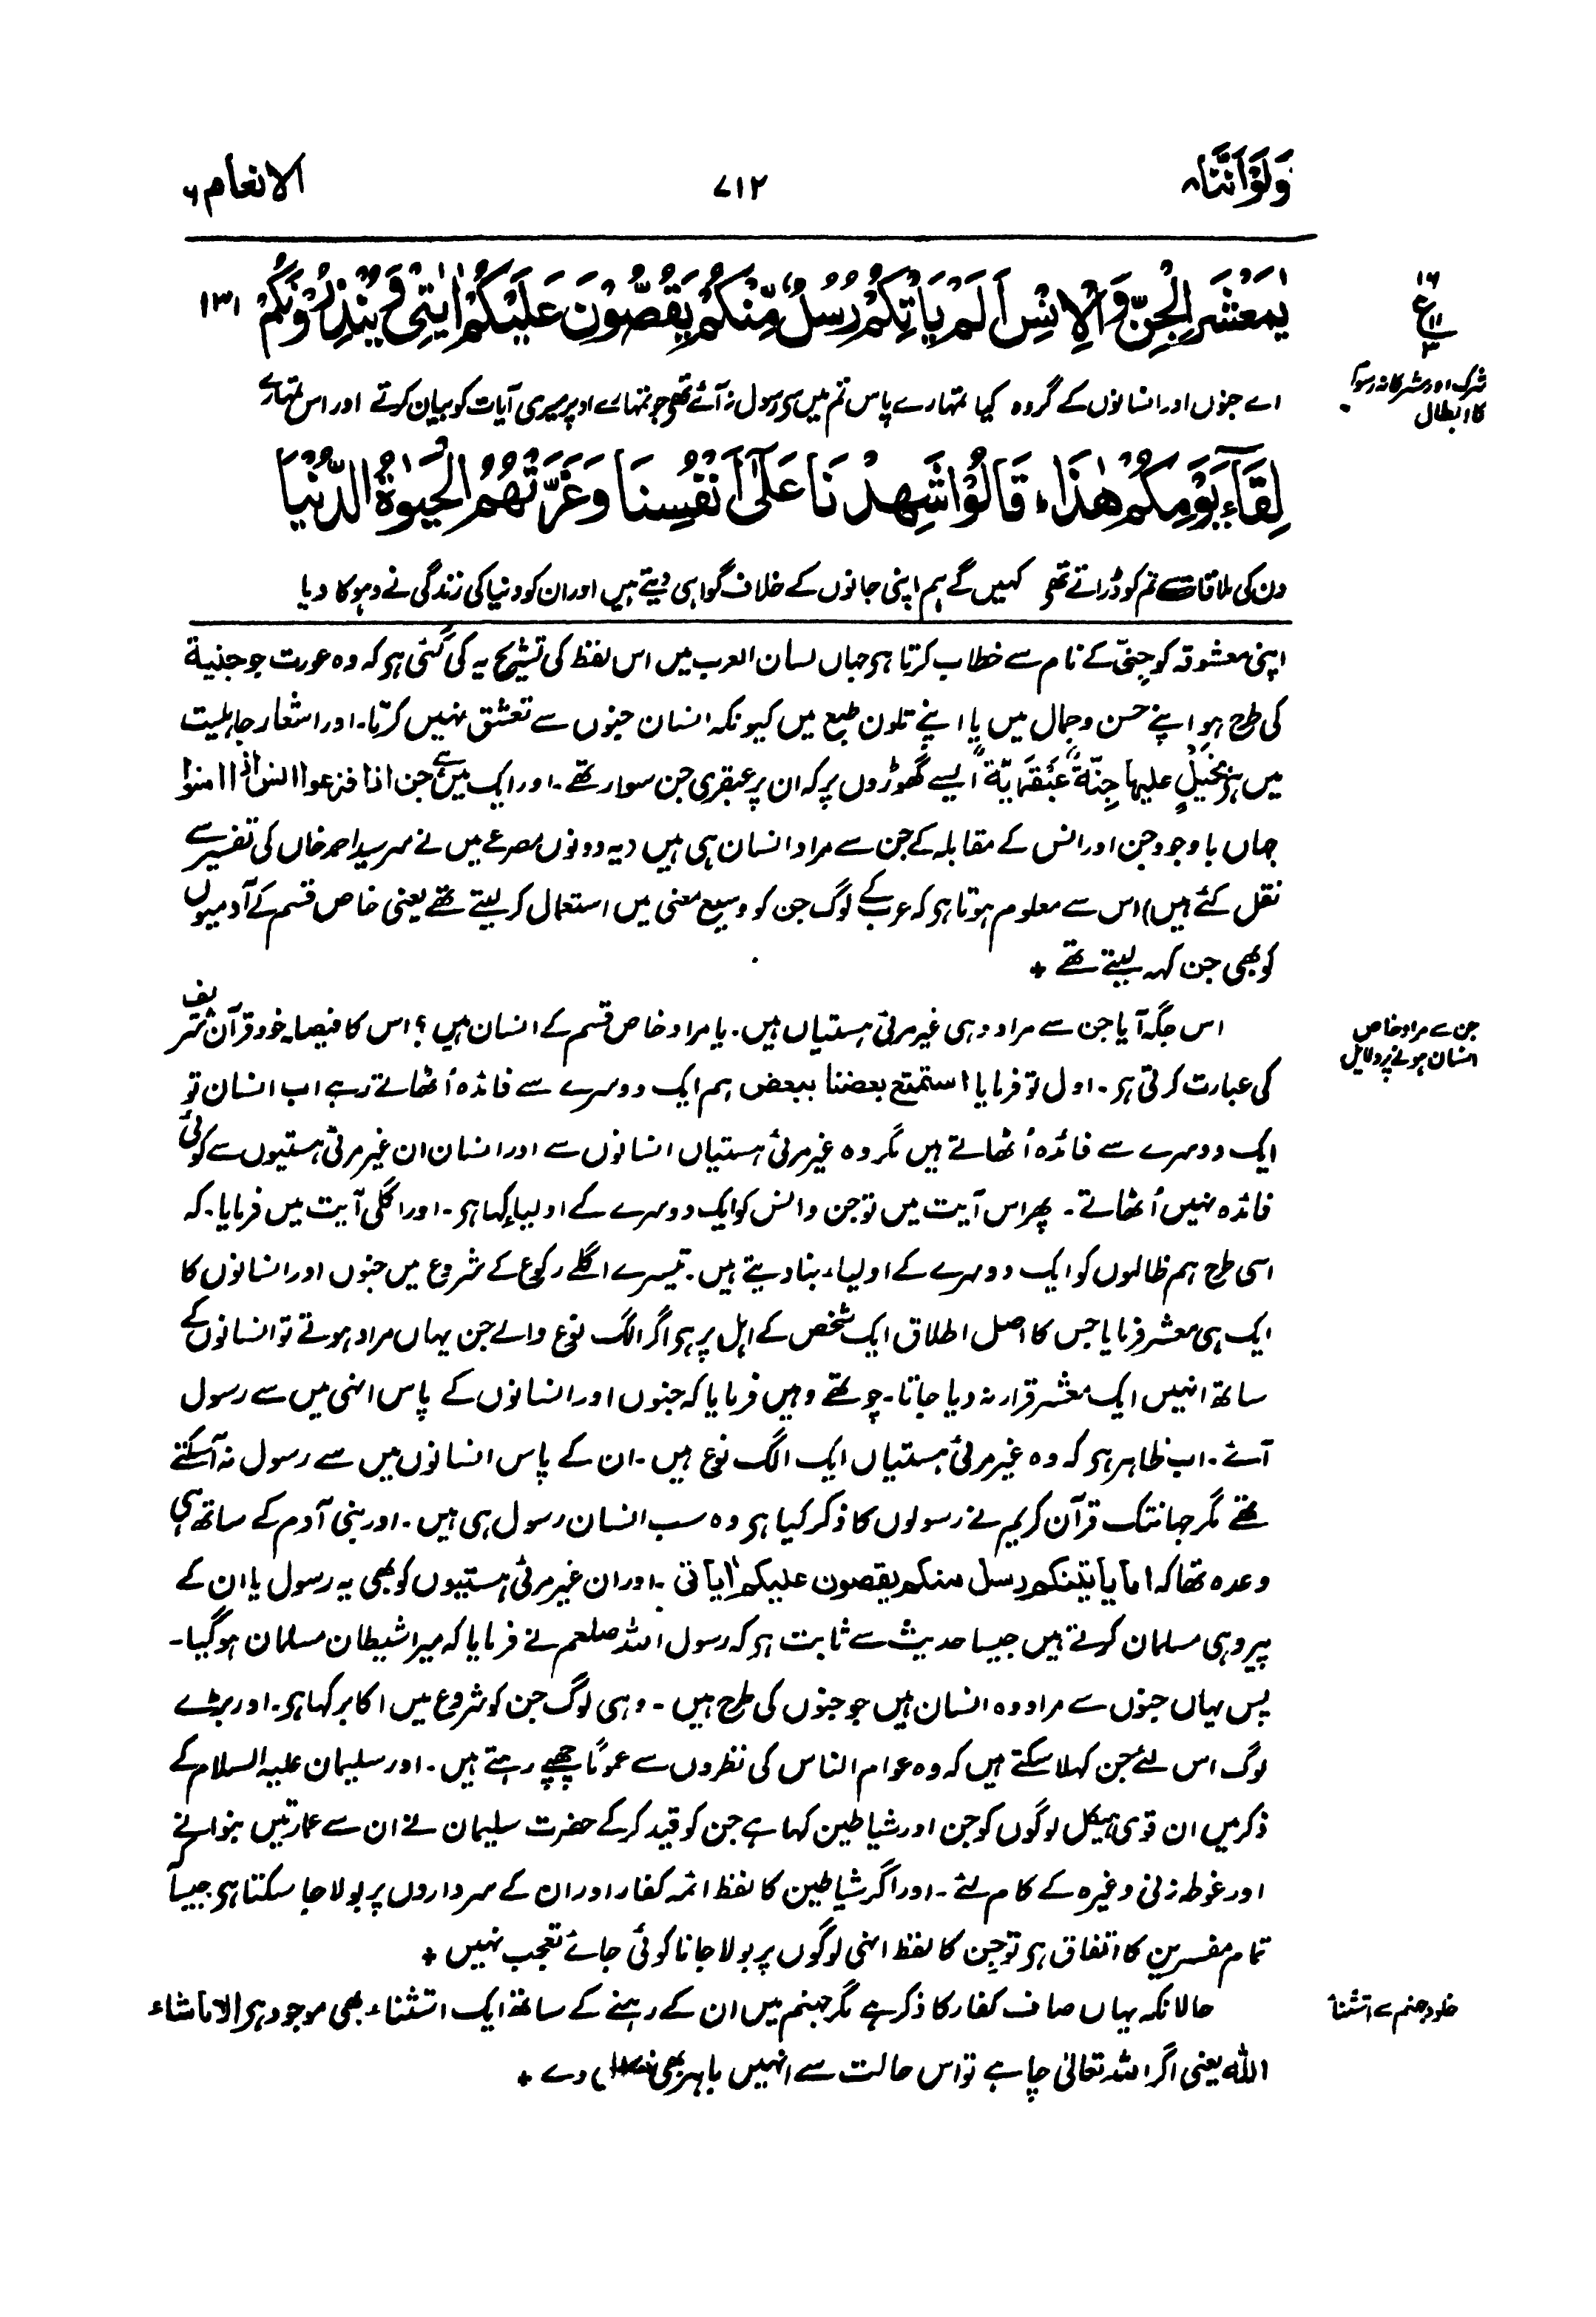 وَلَوْاَنَّنَا ۸
۷۱۲
الانعام ۶
يٰمَعْشَرَ الْجِنِّ وَالْاِنْسِ اَلَمْ يَاْتِكُمْ رُسُلٌ مِّنْكُمْ يَقُصُّوْنَ عَلَيْكُمْ اٰيٰتِيْ وَيُنْذِرُوْنَكُمْ ۱۳۱
۱۶
ع
۱۱
۳
شرک اور مشرکانہ رسوم
کا ابطال
اے جنوں اور انسانوں کے گروہ کیا تمہارے پاس تم میں سے رسول نہ آئے تھے جو تمہارے اوپر میری آیات کو بیان کرتے اور اس تمہارے
لِقَآءَ يَوْمِكُمْ هٰذَا ؕ قَالُوْا شَهِدْنَا عَلٰٓى اَنْفُسِنَا وَغَرَّتْهُمُ الْحَيٰوةُ الدُّنْيَا
دن کی ملاقات سے تم کو ڈراتے تھے کہیں گے ہم اپنی جانوں کے خلاف گواہی دیتے ہیں اور ان کو دنیا کی زندگی نے دہوکا دیا
اپنی معشوقہ کو جِنّی کے نام سے خطاب کرتا ہو جہاں لسان العرب میں اس لفظ کی تشریح یہ کی گئی ہو کہ وہ عورت جو جنیة
کی طرح ہو اپنے حسن وجمال میں یا اپنے تلون طبع میں کیونکہ انسان جنوں سے تعشق نہیں کرتا۔ اور اشعار جاہلیت
میں ہو بخَیلٍ علیہا جِنّةٌ عَبْقَرِیّةٌ ایسے گھوڑوں پر کہ ان پر عبقری جن سوار تھے۔ اور ایک میں ہے جن اذا فزعوا انس اذا امنوا
جہاں باوجود جن اور انس کے مقابلہ کے جن سے مراد انسان ہی ہیں (یہ دونوں مصرعے میں نے سر سید احمد خاں کی تفسیر سے
نقل کئے ہیں) اس سے معلوم ہوتا ہو کہ عرب کے لوگ جن کو وسیع معنی میں استعمال کر لیتے تھے یعنی خاص قسم کے آدمیوں
کو بھی جن کہہ لیتے تھے ٭
جن سے مراد خاص
انسان ہونے پر دلایل
اس جگہ آیا جن سے مراد وہی غیر مرئی ہستیاں ہیں۔ یا مراد خاص قسم کے انسان ہیں؟ اس کا فیصلہ خود قرآن شریف
کی عبارت کرتی ہو۔ اول تو فرمایا استمتع بعضنا ببعض ہم ایک دوسرے سے فائدہ اُٹھاتے رہے اب انسان تو
ایک دوسرے سے فائدہ اُٹھاتے ہیں مگر وہ غیر مرئی ہستیاں انسانوں سے اور انسان ان غیر مرئی ہستیوں سے کوئی
فائدہ نہیں اُٹھاتے۔ پھر اس آیت میں تو جن وانس کو ایک دوسرے کے اولیاء کہا ہو۔ اور اگلی آیت میں فرمایا۔ کہ
اسی طرح ہم ظالموں کو ایک دوسرے کے اولیاء بنا دیتے ہیں۔ تیسرے اگلے رکوع کے شروع میں جنوں اور انسانوں کا
ایک ہی معشر فرمایا جس کا اصل اطلاق ایک شخص کے اہل پر ہو اگر الگ نوع والے جن یہاں مراد ہوتے تو انسانوں کے
ساتھ انہیں ایک معشر قرار نہ دیا جاتا۔ چوتھے وہیں فرمایا کہ جنوں اور انسانوں کے پاس انہی میں سے رسول
آئے۔ اب ظاہر ہو کہ وہ غیر مرئی ہستیاں ایک الگ نوع ہیں۔ ان کے پاس انسانوں میں سے رسول نہ آسکتے
تھے مگر جہانتک قرآن کریم نے رسولوں کا ذکر کیا ہو وہ سب انسان رسول ہی ہیں۔ اور بنی آدم کے ساتھ ہی
وعدہ تھا کہ اما یأتینکم رسل منکم یقصون علیکم اٰیاتی۔ اور ان غیر مرئی ہستیوں کو بھی یہ رسول یا ان کے
پیرو ہی مسلمان کرتے ہیں جیسا حدیث سے ثابت ہو کہ رسول اللہ صلعم نے فرمایا کہ میرا شیطان مسلمان ہو گیا۔
پس یہاں جنوں سے مراد وہ انسان ہیں جو جنوں کی طرح ہیں۔ وہی لوگ جن کو شروع میں اکابر کہا ہو۔ اور بڑے
لوگ اس لئے جن کہلا سکتے ہیں کہ وہ عوام الناس کی نظروں سے عمومًا چھپے رہتے ہیں۔ اور سلیمان علیہ السلام کے
ذکر میں ان قوی ہیکل لوگوں کو جن اور شیاطین کہا ہے جن کو قید کر کے حضرت سلیمان نے ان سے عمارتیں بنوانے
اور غوطہ زنی وغیرہ کے کام لئے۔ اور اگر شیاطین کا لفظ ائمہ کفار اور ان کے سرداروں پر بولا جا سکتا ہو جیسا کہ
تمام مفسرین کا اتفاق ہو تو جِن کا لفظ انہی لوگوں پر بولا جانا کوئی جائے تعجب نہیں ٭
خلود جہنم سے استثناء
حالانکہ یہاں صاف کفار کا ذکر ہے مگر جہنم میں ان کے رہنے کے ساتھ ایک استثناء بھی موجود ہو الا ماشاء
اللہ یعنی اگر اللہ تعالیٰ چاہے تو اس حالت سے انہیں باہر بھی دے ٭